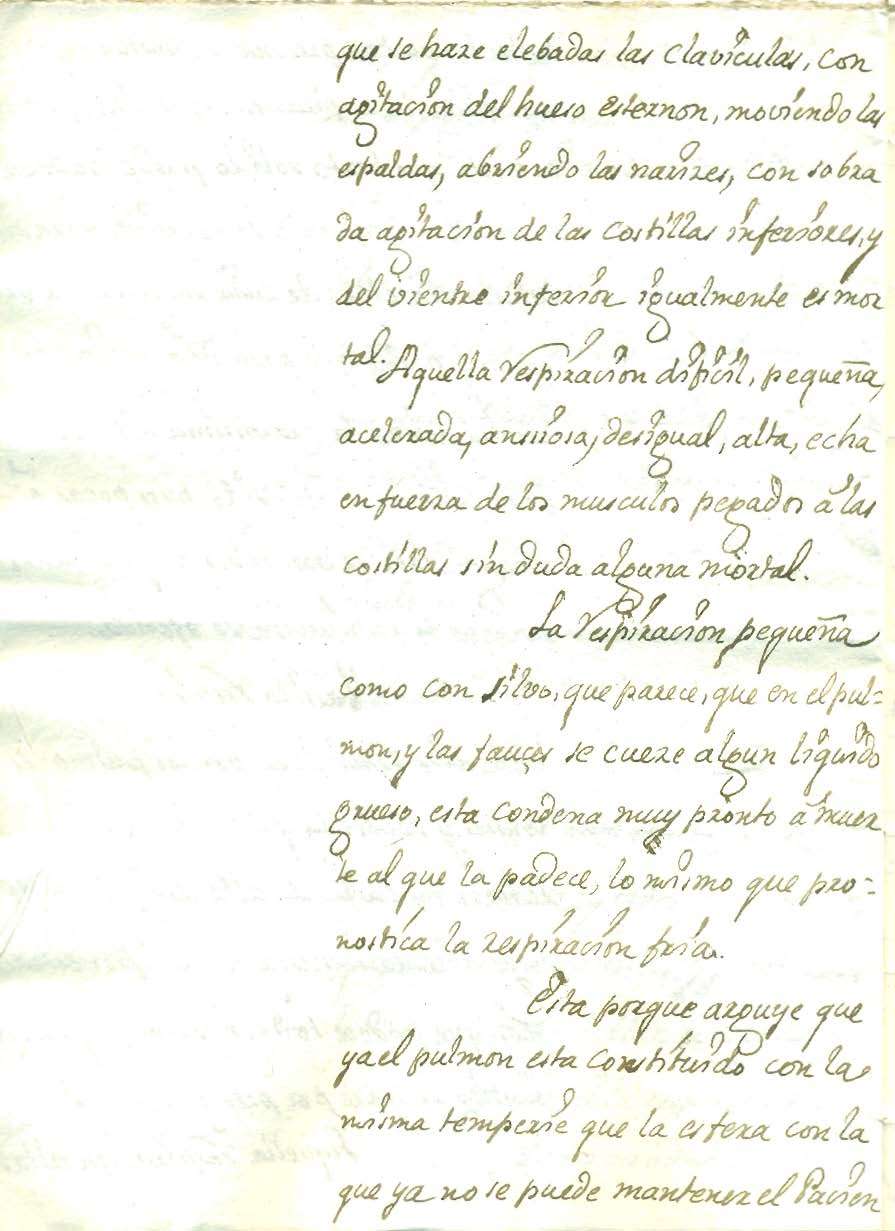 que se haze elebadas las claviculas, con
agitacion del hueso esternon, moviendo las
espaldas, abriendo las narizes, con sobra
da agitacion de las costillas inferiores, y
del vientre inferior igualmente es mor
tal. Aquella respiracion dificil, pequeña,
acelerada, ansiosa, desigual, alta, echa
en fuerza de los musculos pegados â las
costillas sin duda alguna mortal.
La respiracion pequeña
como con silvo, que parece, que en el pul=
mon, y las fauçes se cueze algun liquido
grueso, esta condena muy pronto â muer
te al que la padece, lo mismo que pro=
nostica la respiracion fria.
Esta porque arguye que
ya el pulmon esta constituido con la
misma temperie que la esfera con la
que ya no se puede mantener el Pacien